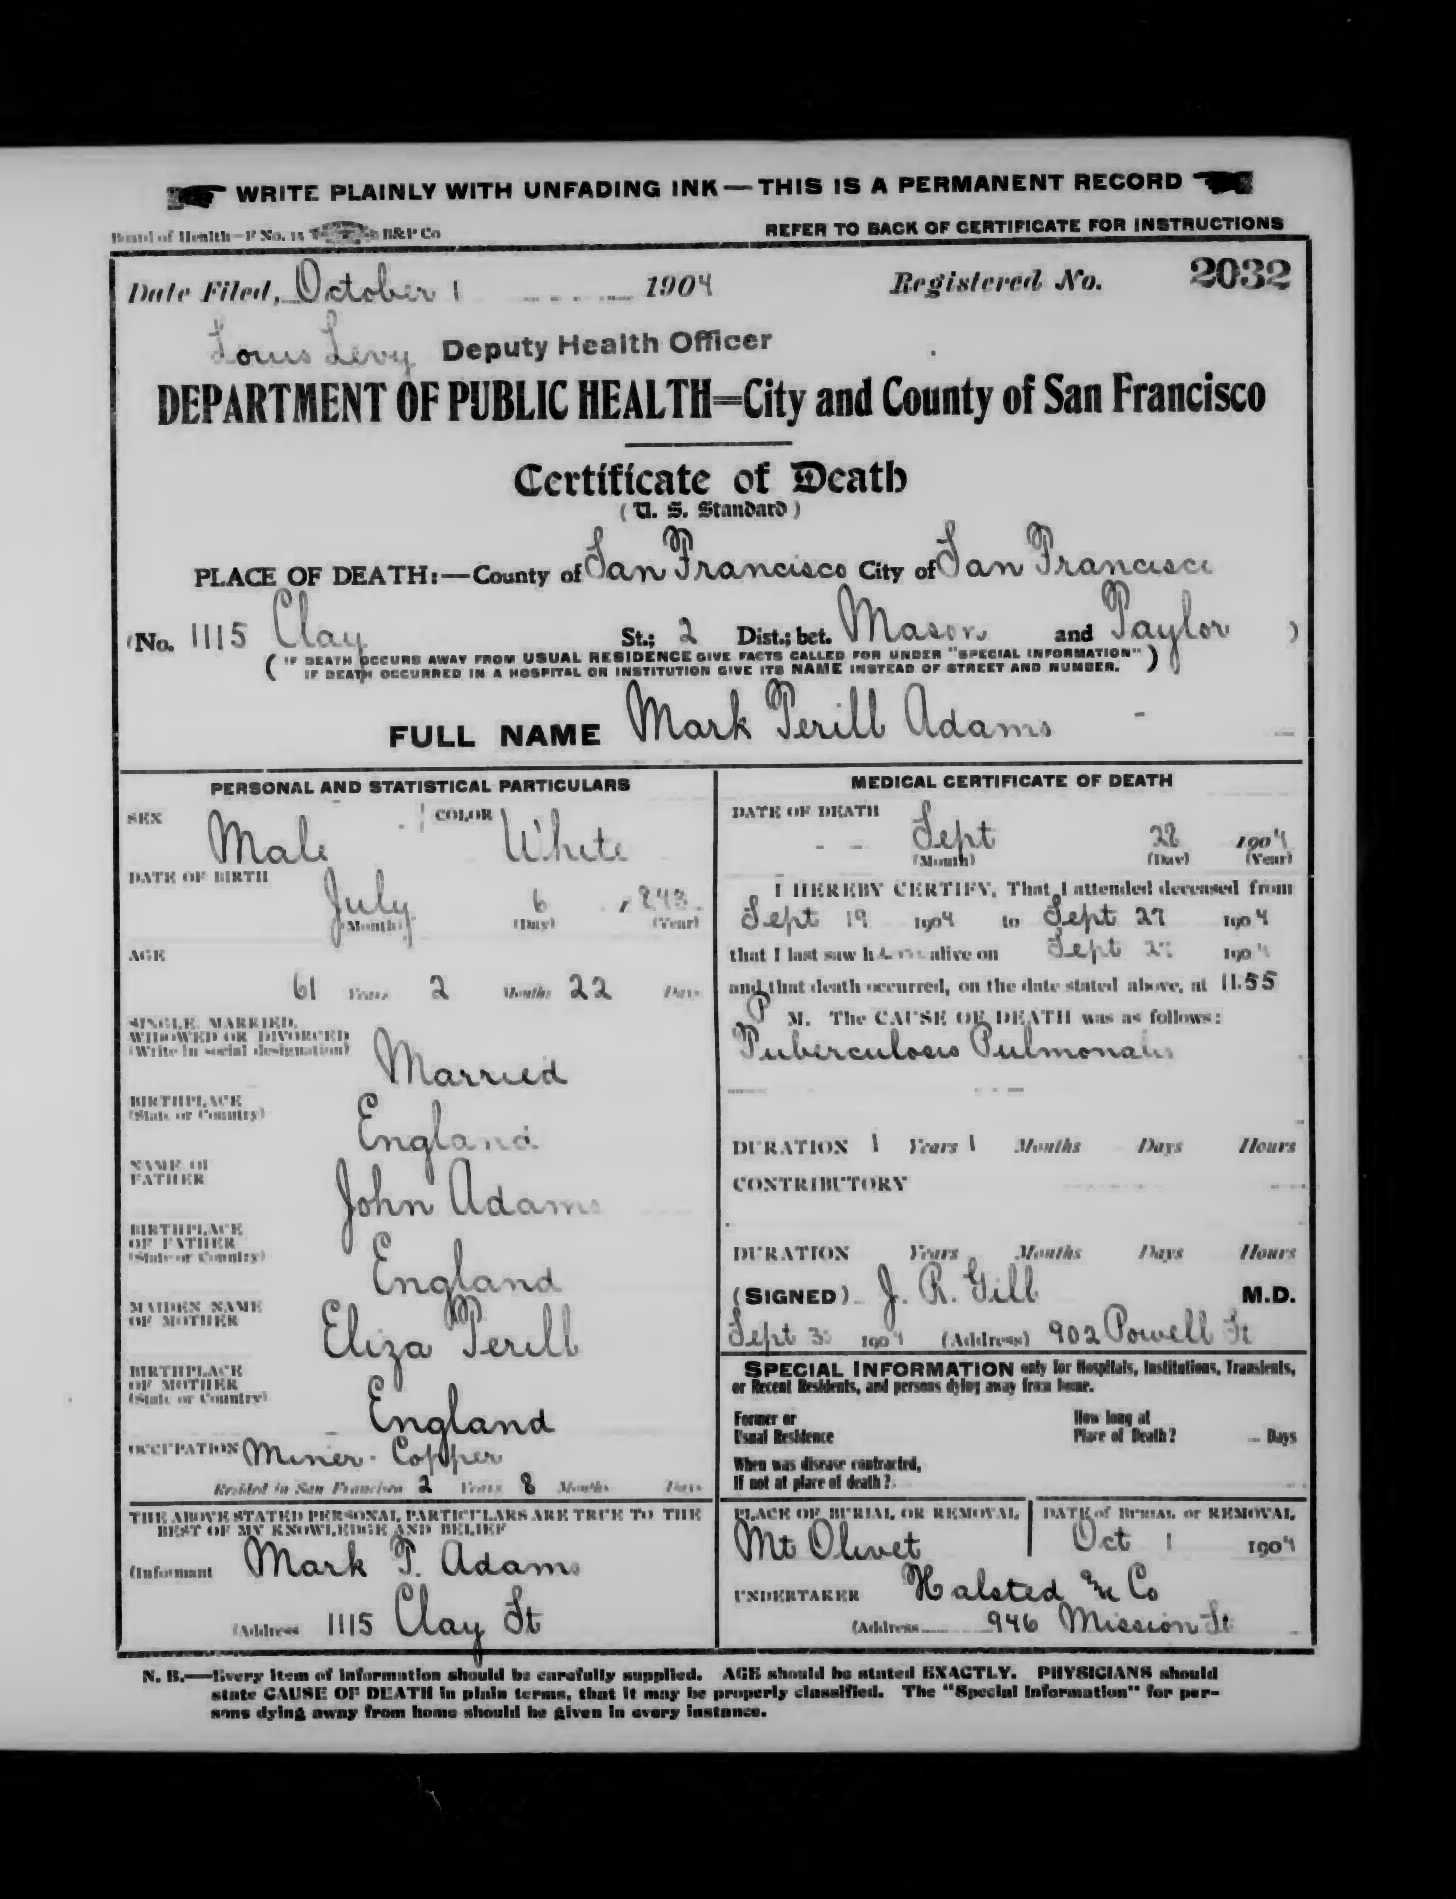 WRITE PLAINLY WITH UNFADING INK—THIS IS A PERMANENT RECORD
Board of Health—F No. 15 B&P Co
REFER TO BACK OF CERTIFICATE FOR INSTRUCTIONS
Date Filed, October 1 1904 Registered No. 2032
Louis Levy Deputy Health Officer
DEPARTMENT OF PUBLIC HEALTH=City and County of San Francisco
Certificate of Death
(U. S. Standard)
PLACE OF DEATH:—County of San Francisco City of San Francisco
(No. 1115 Clay St.; 2 Dist.; bet. Mason and Taylor )
( IF DEATH OCCURS AWAY FROM USUAL RESIDENCE GIVE FACTS CALLED FOR UNDER "SPECIAL INFORMATION" )
IF DEATH OCCURRED IN A HOSPITAL OR INSTITUTION GIVE ITS NAME INSTEAD OF STREET AND NUMBER.
FULL NAME Mark Perill Adams
PERSONAL AND STATISTICAL PARTICULARS
SEX Male COLOR White
DATE OF BIRTH
July 6 1843
(Month) (Day) (Year)
AGE
61 Years 2 Months 22 Days
SINGLE, MARRIED,
WIDOWED OR DIVORCED
(Write in social designation)
Married
BIRTHPLACE
(State or Country)
England
NAME OF
FATHER
John Adams
BIRTHPLACE
OF FATHER
(State or Country)
England
MAIDEN NAME
OF MOTHER
Eliza Perill
BIRTHPLACE
OF MOTHER
(State or Country)
England
OCCUPATION Miner - Copper
Resided in San Francisco 2 Years 8 Months Days
THE ABOVE STATED PERSONAL PARTICULARS ARE TRUE TO THE
BEST OF MY KNOWLEDGE AND BELIEF
(Informant Mark P. Adams
(Address 1115 Clay St
MEDICAL CERTIFICATE OF DEATH
DATE OF DEATH
Sept 28 1904
(Month) (Day) (Year)
I HEREBY CERTIFY, That I attended deceased from
Sept 19 1904 to Sept 27 1904
that I last saw him alive on Sept 27 1904
and that death occurred, on the date stated above, at 11.55
P M. The CAUSE OF DEATH was as follows:
Tuberculosis Pulmonalis
DURATION 1 Years 1 Months Days Hours
CONTRIBUTORY
DURATION Years Months Days Hours
(SIGNED) J. R. Gill M.D.
Sept 1904 (Address) 902 Powell St
SPECIAL INFORMATION only for Hospitals, Institutions, Transients,
or Recent Residents, and persons dying away from home.
Former or
Usual Residence
How long at
Place of Death? Days
When was disease contracted,
If not at place of death?
PLACE OF BURIAL OR REMOVAL
Mt Olivet
DATE of BURIAL or REMOVAL
Oct 1 1904
UNDERTAKER Halsted & Co
(Address 946 Mission St
N. B.—Every item of information should be carefully supplied. AGE should be stated EXACTLY. PHYSICIANS should
state CAUSE OF DEATH in plain terms, that it may be properly classified. The "Special Information" for per-
sons dying away from home should be given in every instance.